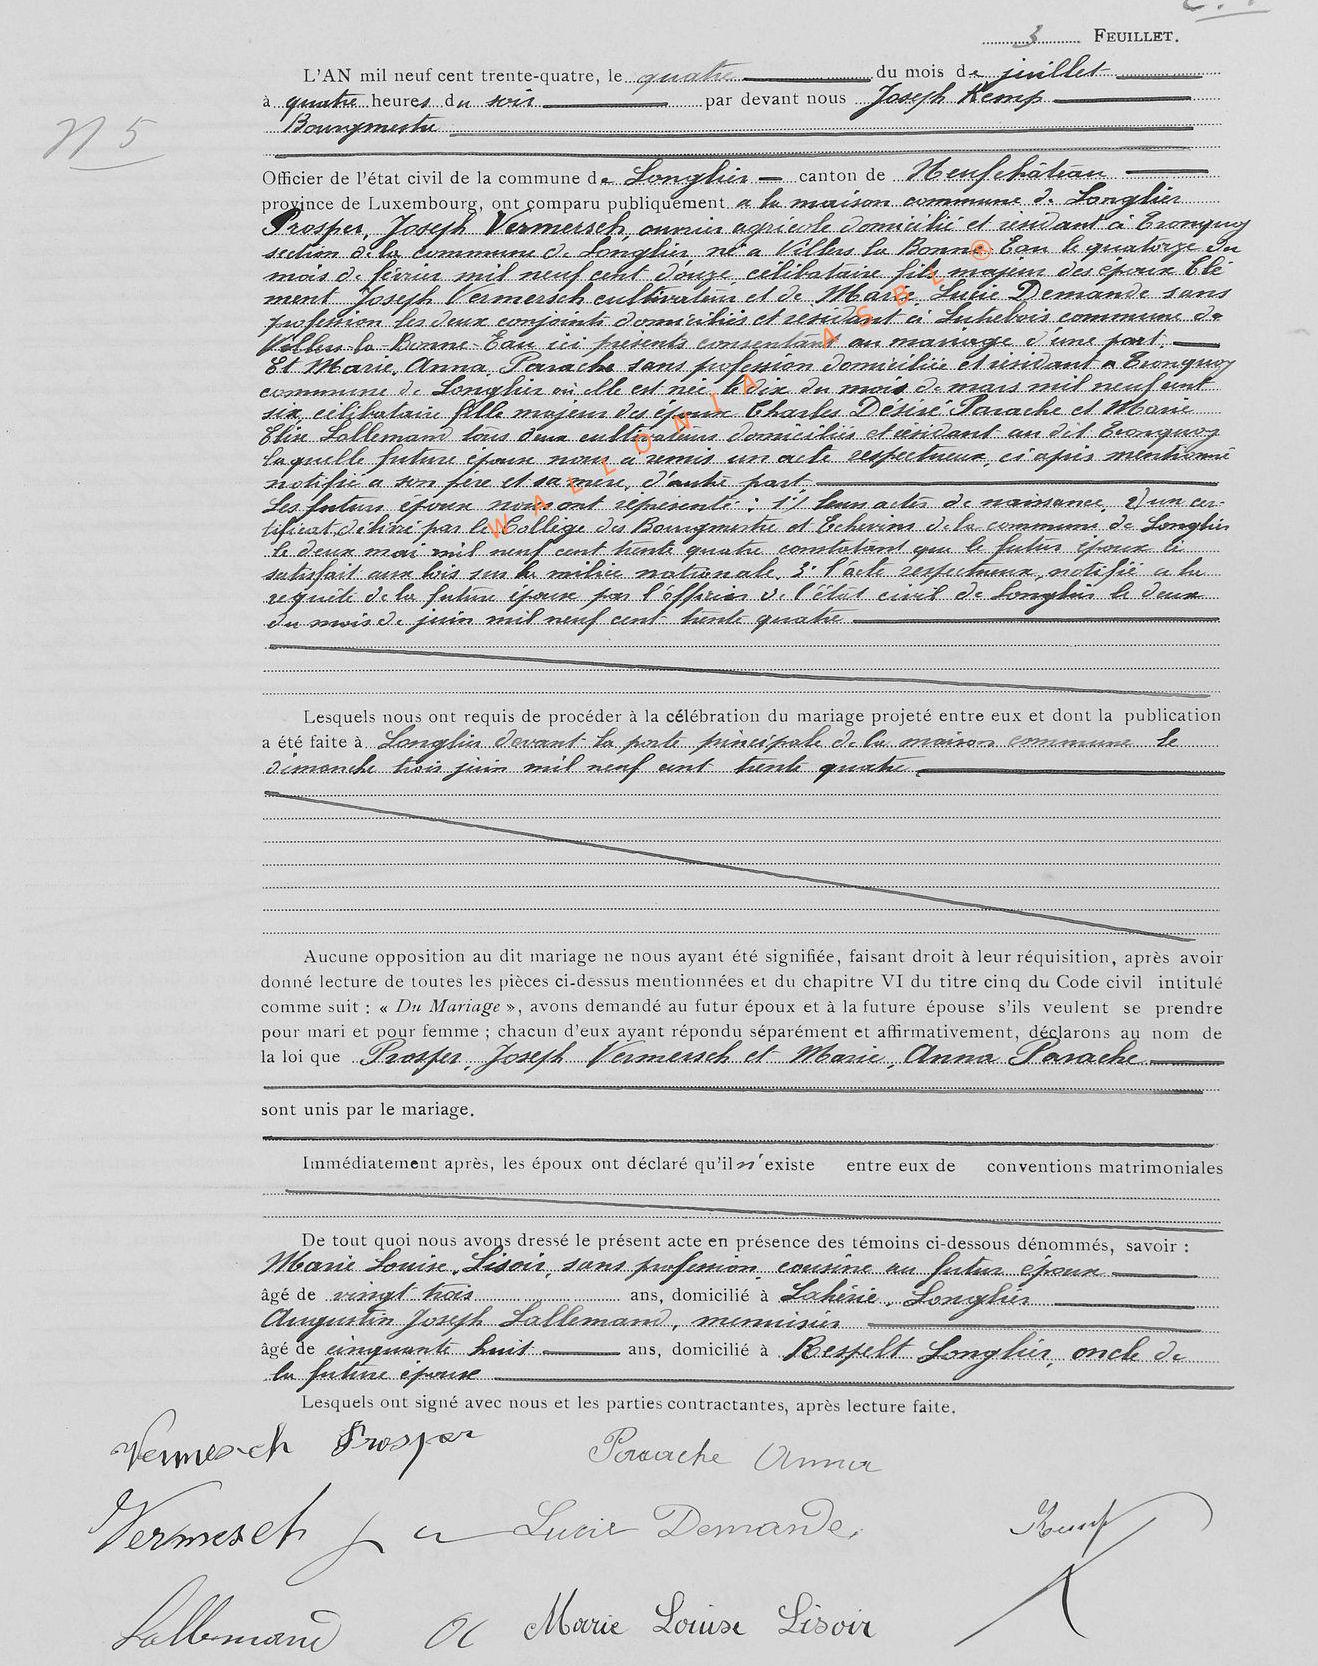 3 FEUILLET.
L'AN mil neuf cent trente-quatre, le quatre du mois de juillet
à quatre heures du soir par devant nous Joseph Kemp
Bourgmestre
N 5
Officier de l'état civil de la commune de Longlier canton de Neufchâteau
province de Luxembourg, ont comparu publiquement a la maison commune de Longlier
Prosper, Joseph Vermersch, ouvrier agricole domicilié et résidant à Tronquoy
section de la commune de Longlier né a Villers la Bonne Eau le quatorze du
mois de février mil neuf cent douze, célibataire fils majeur des époux Clé-
ment Joseph Vermersch cultivateur et de Marie, Lucie Demande sans
profession les deux conjoints domiciliés et résidant à Lutrebois commune de
Villers-la-Bonne-Eau ici présents consentant au mariage d'une part.
Et Marie, Anna, Parache sans profession domiciliée et résidant a Tronquoy
commune de Longlier où elle est née le dix du mois de mars mil neuf cent
six, célibataire fille majeur des époux Charles Désiré Parache et Marie
Elise Lallemand tous deux cultivateurs domiciliés et résidant au dit Tronquoy
laquelle future épouse nous a remis un acte respectueux, ci après mentionné
notifié a son père et sa mère, d'autre part
Les futurs époux nous ont représenté : 1) leurs actes de naissance 2) un cer-
tificat délivré par le Collège des Bourgmestre et Echevins de la commune de Longlier
le deux mai mil neuf cent trente quatre constatant que le futur époux a
satisfait aux lois sur la milice nationale. 3° l'acte respectueux, notifié a la
requête de la future épouse par l'officier de l'état civil de Longlier le deux
du mois de juin mil neuf cent trente quatre
Lesquels nous ont requis de procéder à la célébration du mariage projeté entre eux et dont la publication
a été faite à Longlier devant la porte principale de la maison commune le
dimanche trois juin mil neuf cent trente quatre
Aucune opposition au dit mariage ne nous ayant été signifiée, faisant droit à leur réquisition, après avoir
donné lecture de toutes les pièces ci-dessus mentionnées et du chapitre VI du titre cinq du Code civil intitulé
comme suit : « Du Mariage », avons demandé au futur époux et à la future épouse s'ils veulent se prendre
pour mari et pour femme ; chacun d'eux ayant répondu séparément et affirmativement, déclarons au nom de
la loi que Prosper, Joseph Vermersch et Marie, Anna Parache
sont unis par le mariage.
Immédiatement après, les époux ont déclaré qu'il n'existe entre eux de conventions matrimoniales
De tout quoi nous avons dressé le présent acte en présence des témoins ci-dessous dénommés, savoir :
Marie Louise, Lisoir, sans profession, cousine au futur époux
âgé de vingt trois ans, domicilié à Lahérie, Longlier
Augustin Joseph Lallemand, menuisier
âgé de cinquante huit ans, domicilié à Respelt Longlier, oncle de
la future épouse
Lesquels ont signé avec nous et les parties contractantes, après lecture faite.
Vermersch Prosper Parache Anna
Vermersch Lucie Demande Kemp
Lallemand Marie Louise Lisoir
WALLONIA ASBL ®